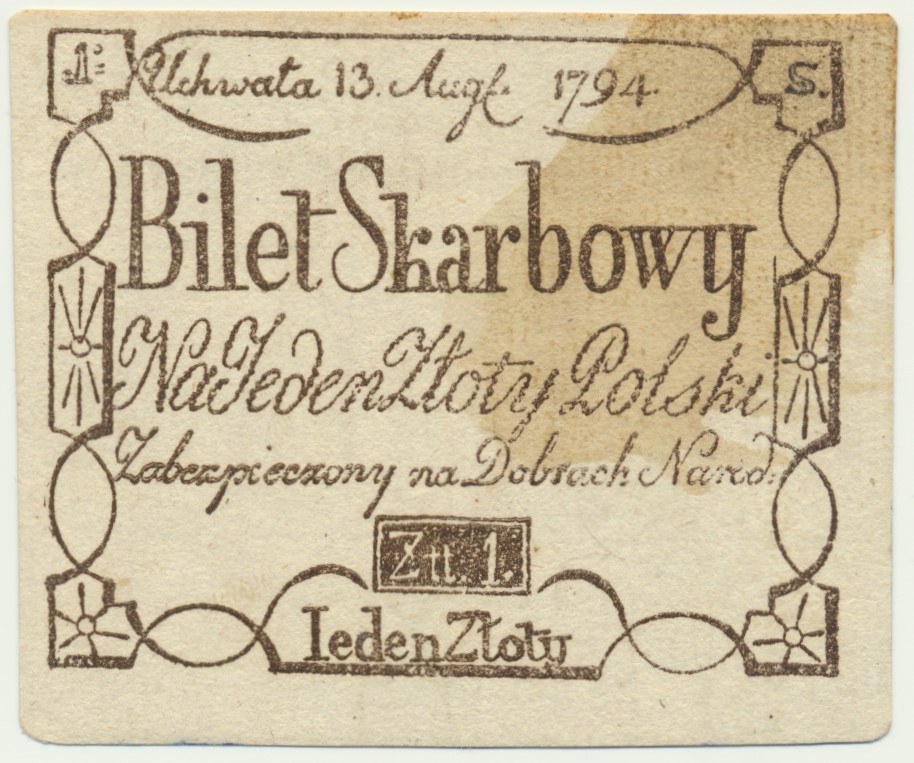 1: Uchwała 13. Augł. 1794. S.
Bilet Skarbowy
Na Jeden Złoty Polski
Zabezpieczony na Dobrach Narod:
Złł 1.
Ieden Złoty